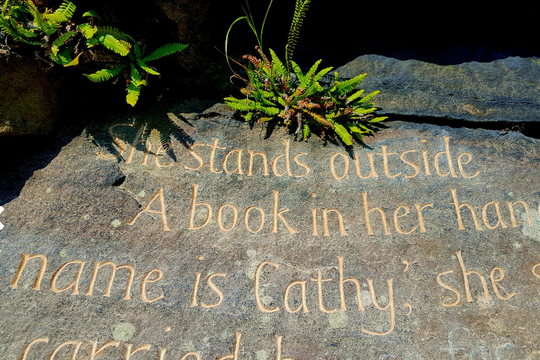 She stands outside
A book in her han
name is Cathy,' she
carried